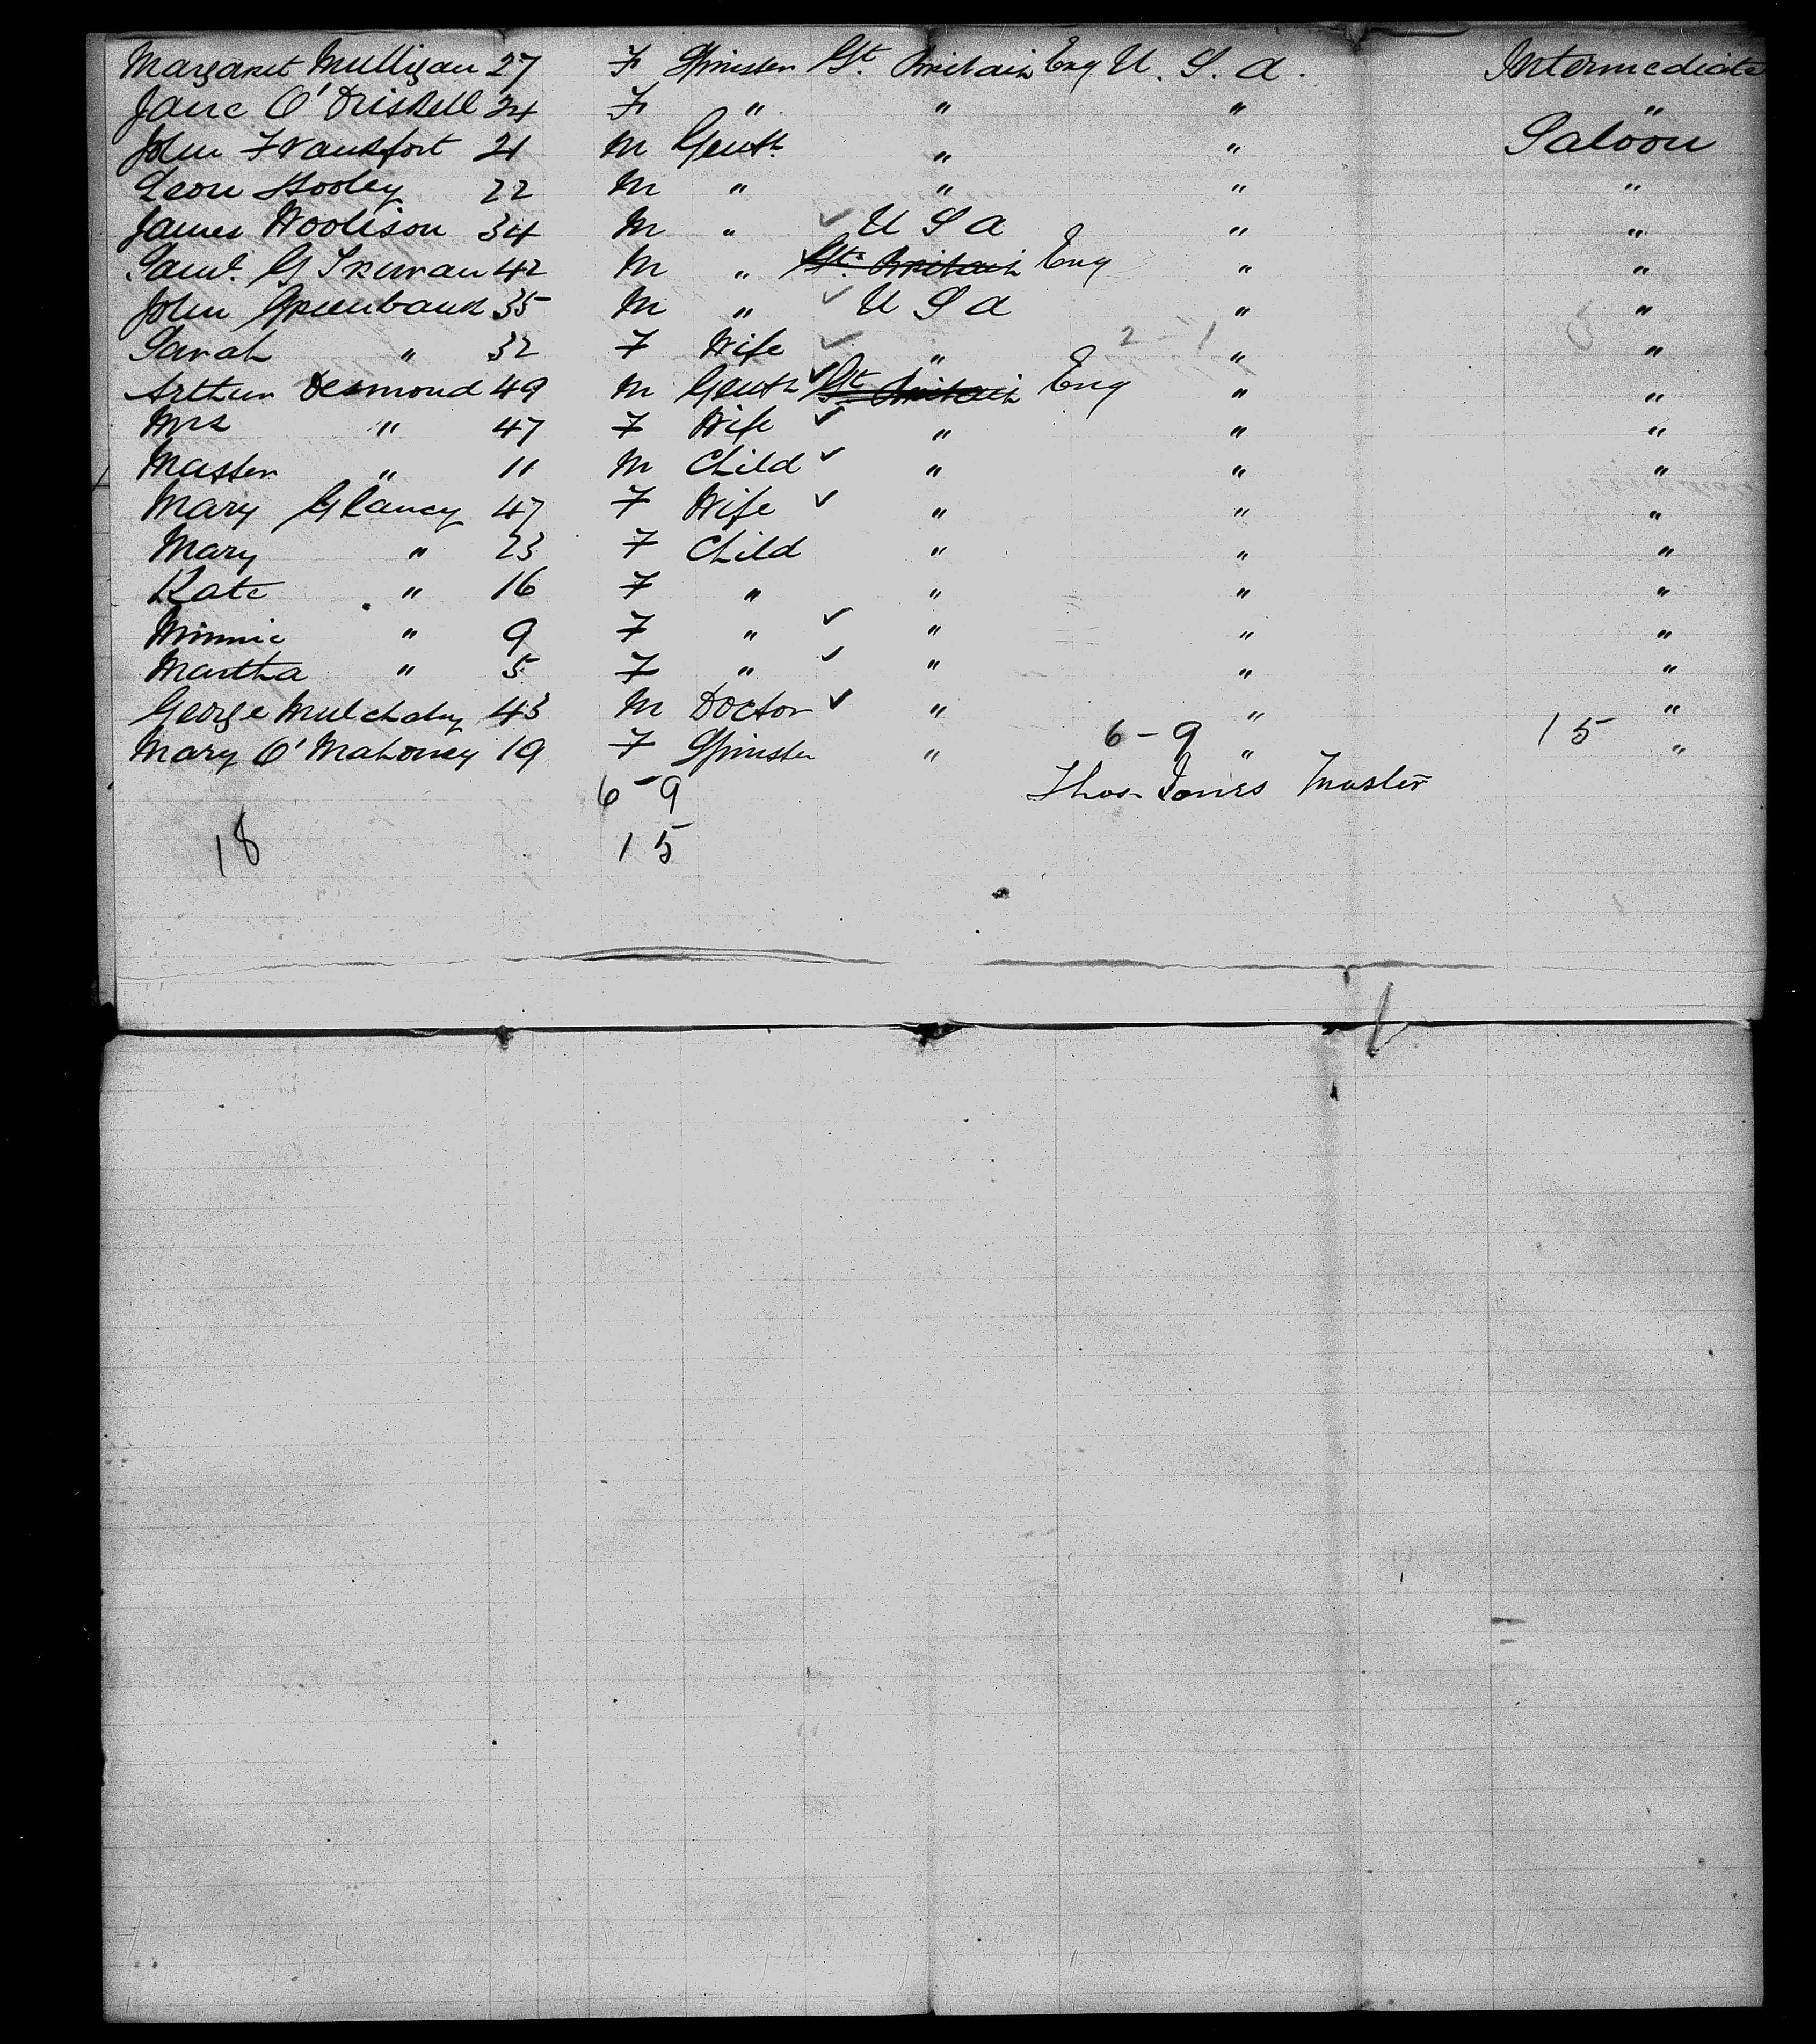 Margaret Mulligan 27 F Spinster Gt. Britain Eng U. S. A. Intermediate
Jane O'Driskell 24 F " " " "
John Frankfort 21 M Gent. " " Saloon
Leon Hooley 22 M " " " "
James Woolison 34 M " ✓ U S A " "
Saml. G 42 M " Gt. Britain Eng " "
John Greenbank 35 M " ✓ U S A " "
2 - 1
Sarah " 32 F Wife ✓ " " "
Arthur Desmond 49 M Gent ✓ Gt Britain Eng " "
Mrs " 47 F Wife ✓ " " "
Master " 11 M Child ✓ " " "
Mary Glancy 47 F Wife ✓ " " "
Mary " 23 F Child " " "
Kate " 16 F " " " "
Minnie " 9 F " ✓ " " "
Martha " 5 F " ✓ " " "
George Mulchahy 43 M Doctor ✓ " " "
6 - 9 15
Mary O'Mahoney 19 F Spinster " " "
6 - 9 Thos. Jones Master
18 15